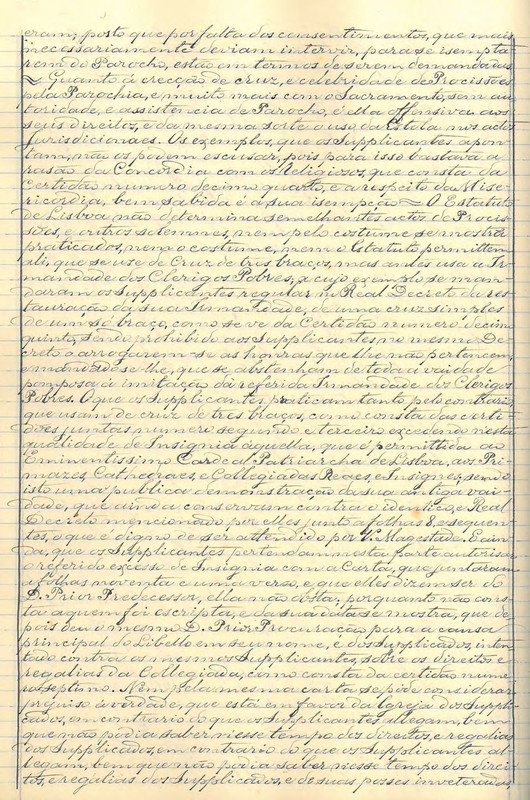 eram; posto que por falta dos consentimentos, que mais
necessariamente deviam intervir, para se isempta
rem do Parocho, estão em termos de serem demandados
= Quanto á erecção de cruz, e celebridade de Procissões
pela Parochia, e muito mais com o Sacramento, sem au
toridade, e assistencia de Parocho, é ella offensiva aos
seus direitos, e da mesma sorte o uso da Estola nos actos
jurisdicionaes. Os exemplos, que os Supplicantes apon
tam, não os podem escusar, pois para isso bastava a
rasão da Concordia com os Religiosos, que consta da
Certidão numero decimo quarto, e a respeito da Mise
ricordia, bem sabida é a sua isempção = O Estatuto
de Lisboa não determina semelhantes actos de Procis
sões, e outros solemnes, nem pelo costume se mostra
praticados, nem o costume, nem o Estatuto permittem
ali, que se use de Cruz de tres braços, mas antes usa a Ir
mandade dos Clerigos Pobres, a cujo exemplo se man
daram os Supplicantes regular no Real Decreto da res
tauração da sua Irmandade, de uma cruz simples
de um só braço, como se ve da Certidão numero decimo
quinto, sendo prohibido aos Supplicantes no mesmo De
creto o arrogarem-se as honras que lhe não pertencem,
e mandado se-lhe, que se abstenham de toda a vaidade
pomposa á imitação da referida Irmandade dos Clerigos
Pobres. O que os Supplicantes praticam tanto pelo contrario,
que usam de cruz de tres braços, como consta das certi=
dões juntas numero segundo e terceiro excedendo nesta
qualidade de Insignia áquella, que é permittida ao
Eminentissimo Cardeal Patriarcha de Lisboa, aos Pri
mazes, Cathedraes, e Collegiadas Reaes, e Insignes, sendo
isto uma publica demonstração da sua antiga vai
dade, que ainda conservam contra o identico, e Real
Decreto mencionado por elles junto a folhas 8, e seguen
tes, o que é digno de ser attendido por V. Magestade. E ain
da, que os Supplicantes pertendam nesta parte autorisar
o referido excesso de Insignia com a Carta, que juntaram
a folhas noventa e uma verso, e que elles dizem ser do
D. Prior Predecessor, ella não obsta; porquanto não cons
ta a quem foi escripta, e da sua data se mostra, que de
pois deu o mesmo D. Prior Procuração para a causa
principal do Libello em seu nome, e dos Supplicados, inten
tado contra os mesmos Supplicantes, sobre os direitos e
regalias da Collegiada, como consta da certidão nume
ro septimo. Nem pela mesma carta se póde considerar
prejuiso á verdade, que está em favor da Igreja dos Suppli
cados, em contrario do que os Supplicantes allegam, bem
que não podia saber nesse tempo dos direitos, e regalias
dos Supplicados, em contrario do que os Supplicantes al
legam, bem que não podia saber nesse tempo dos direi
tos, e regalias dos Supplicados, e de suas posses inveteradas,